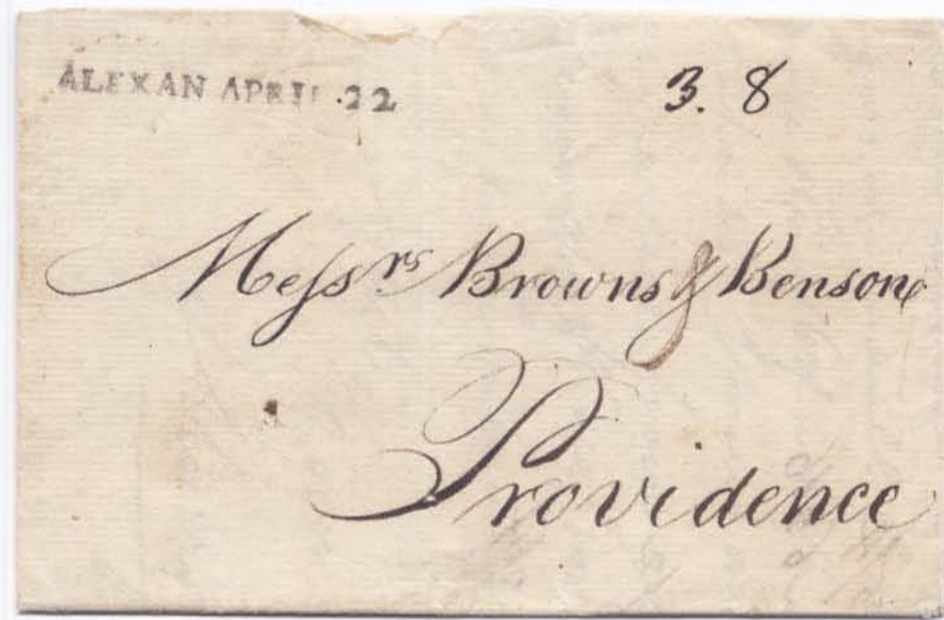 ALEXAN APRIL .22
3. 8
Meſsrs Browns & Benson
Providence